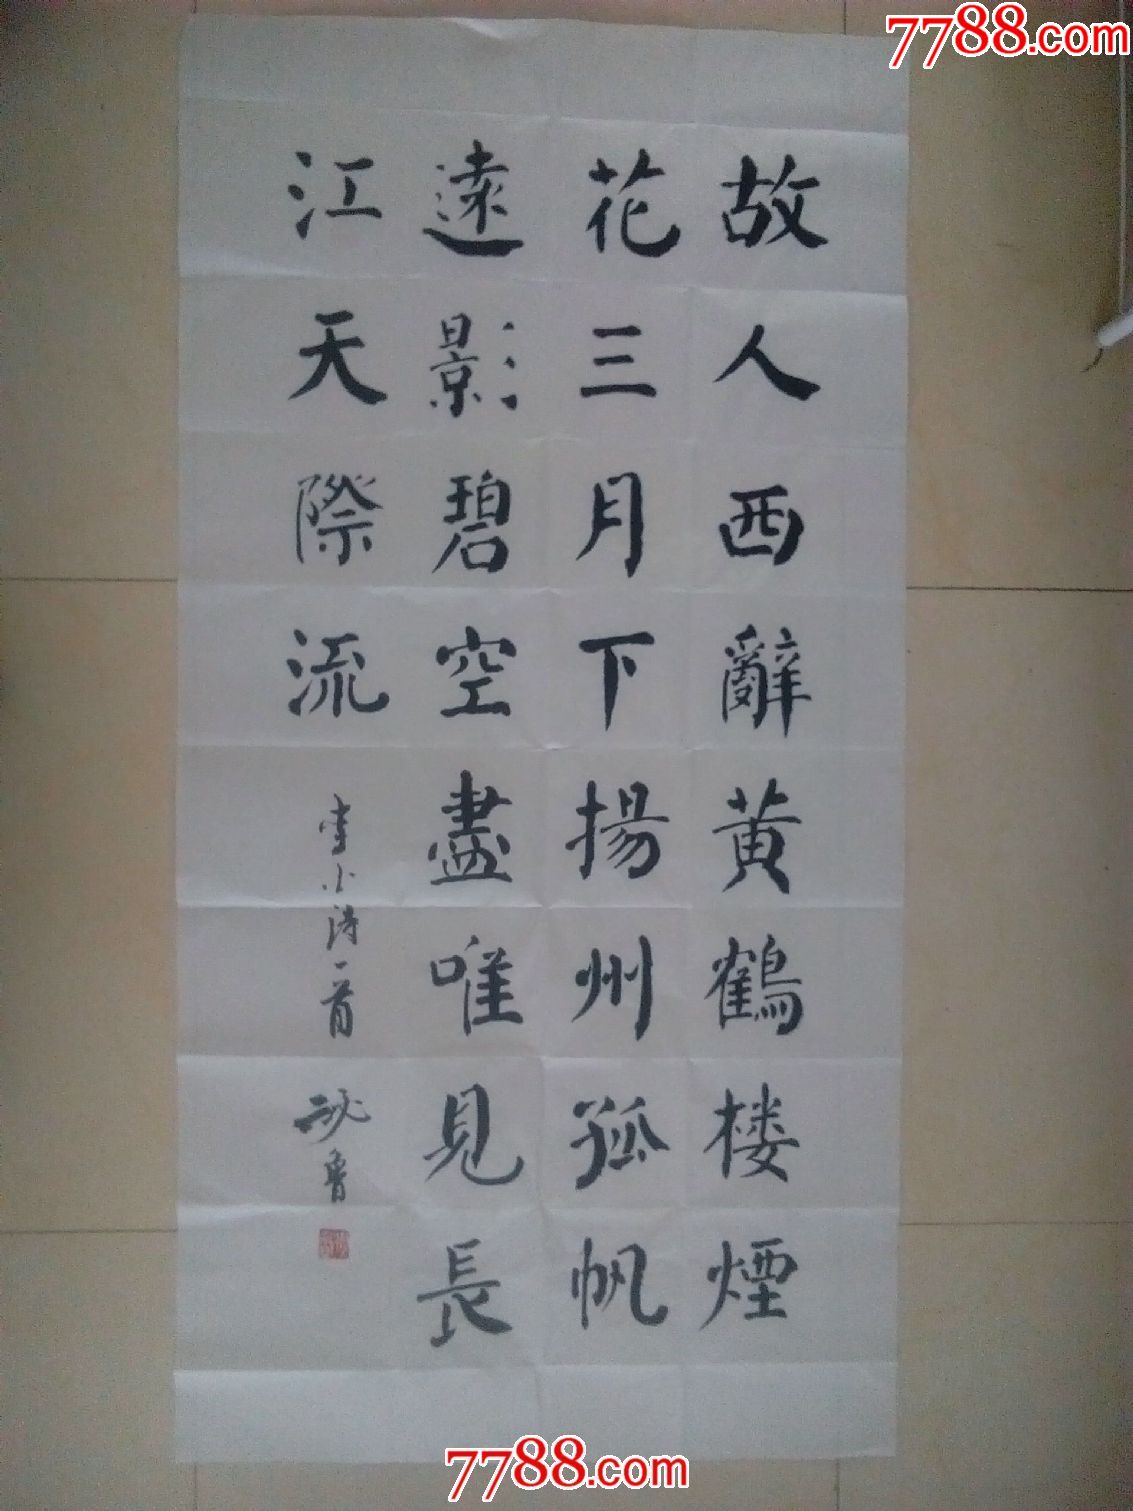 7788.com
故人西辭黄鶴楼煙
花三月下揚州孤帆
遠影碧空盡唯見長
江天際流
李小诗一首
7788.com